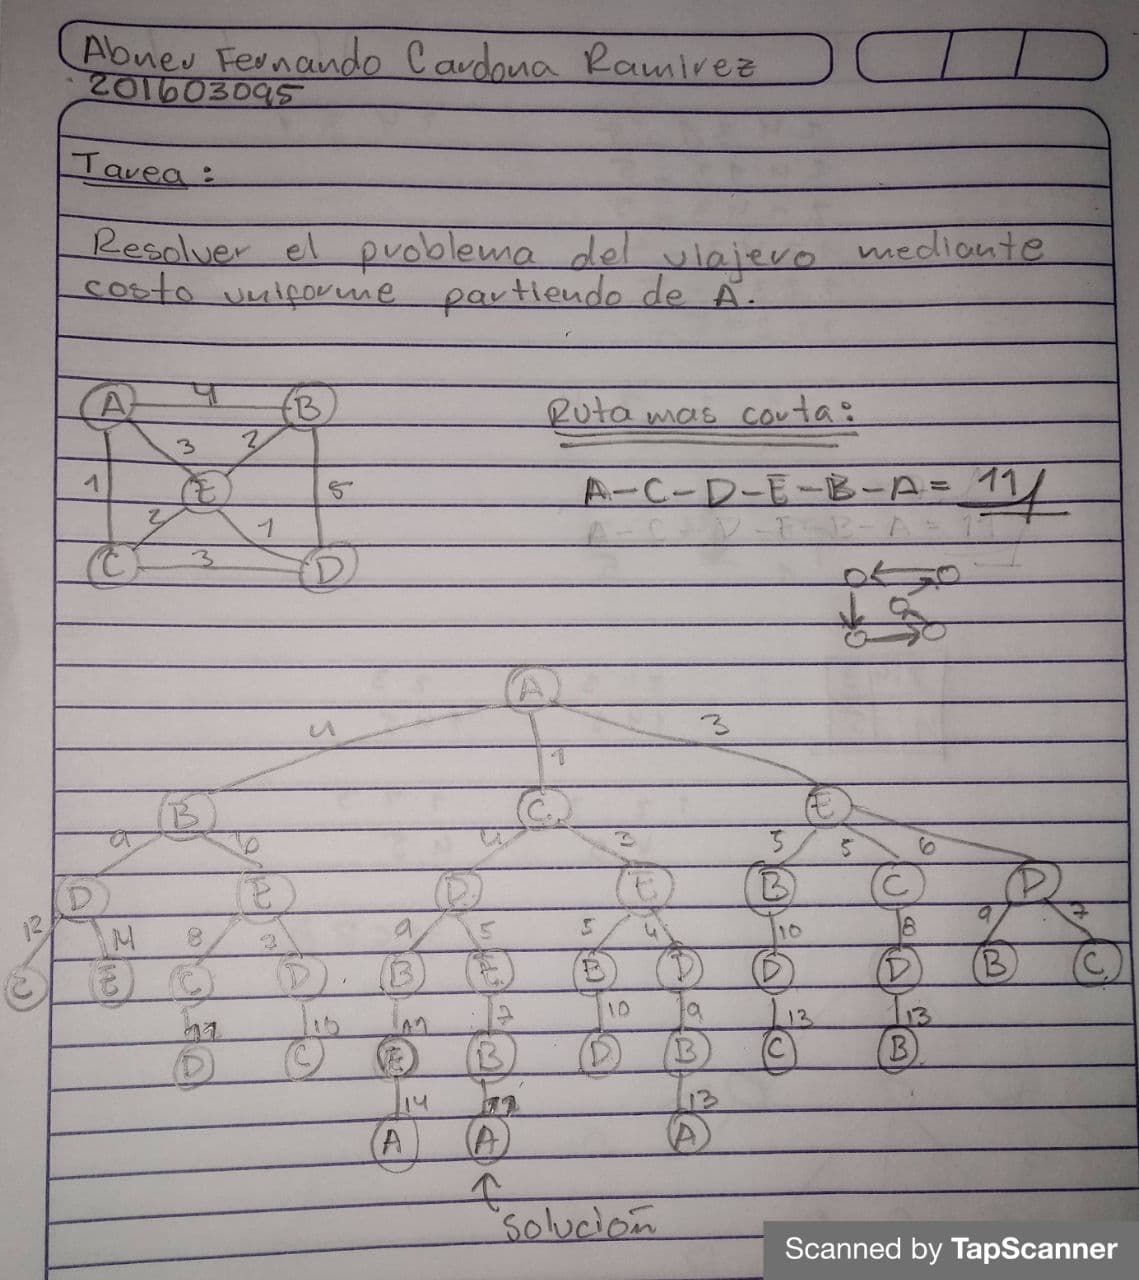 Abner Fernando Cardona Ramirez
201603095
Tarea:
Resolver el problema del viajero mediante
costo uniforme partiendo de A.
A 4 B
Ruta mas corta:
3 2
1 E 5
A-C-D-E-B-A= 11
2 1
C 3 D
A
4 1 3
B C E
9 6 4 3 5 5 6
D E D E B C D
12 14 8 7 9 5 5 4 10 8 9 7
C E C D B E B D D D B C
11 10 11 7 10 9 13 13
D C E B D B C B
14 11 13
A A A
solución
Scanned by TapScanner